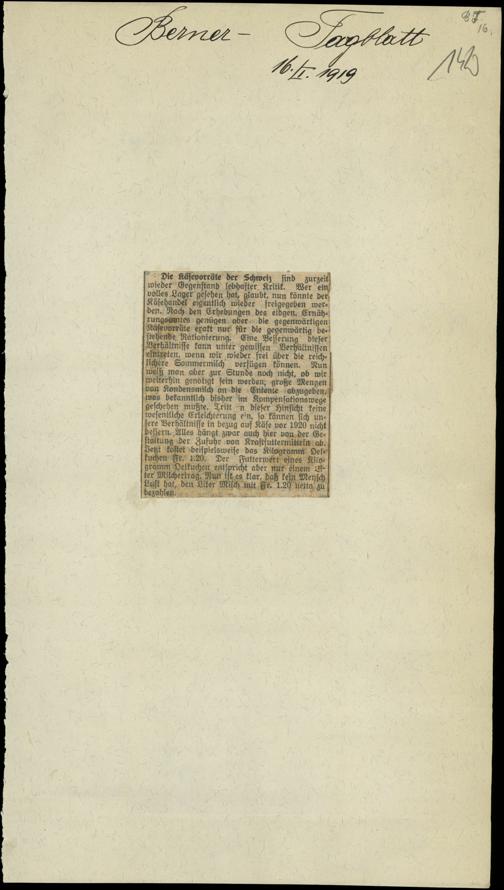 Berner- Tagblatt
16.I. 1919
16.
142
Die Käsevorräte der Schweiz sind zurzeit
wieder Gegenstand lebhafter Kritik. Wer ein
volles Lager gesehen hat, glaubt, nun könnte der
Käsehandel eigentlich wieder freigegeben wer-
den. Nach den Erhebungen des eidgen. Ernäh-
rungsamtes genügen aber die gegenwärtigen
Käsevorräte exakt nur für die gegenwärtig be-
stehende Rationierung. Eine Besserung dieser
Verhältnisse kann unter gewissen Verhältnissen
eintreten, wenn wir wieder frei über die reich-
lichere Sommermilch verfügen können. Nun
weiß man aber zur Stunde noch nicht, ob wir
weiterhin genötigt sein werden, große Mengen
von Kondensmilch an die Entente abzugeben,
was bekanntlich bisher im Kompensationswege
geschehen mußte. Tritt n dieser Hinsicht keine
wesentliche Erleichterung e'n, so können sich un-
sere Verhältnisse in bezug auf Käse vor 1920 nicht
bessern. Alles hängt zwar auch hier von der Ge-
staltung der Zufuhr von Kraftfuttermitteln ab.
Jetzt kostet beispielsweise das Kilogramm Oel-
kuchen Fr. 1.20. Der Futterwert eines Kilo-
gramm Oelkuchen entspricht aber nur einem Li-
ter Milchertrag. Nun ist es klar, daß kein Mensch
Lust hat, den Liter Milch mit Fr. 1.20 netto zu
bezahlen.